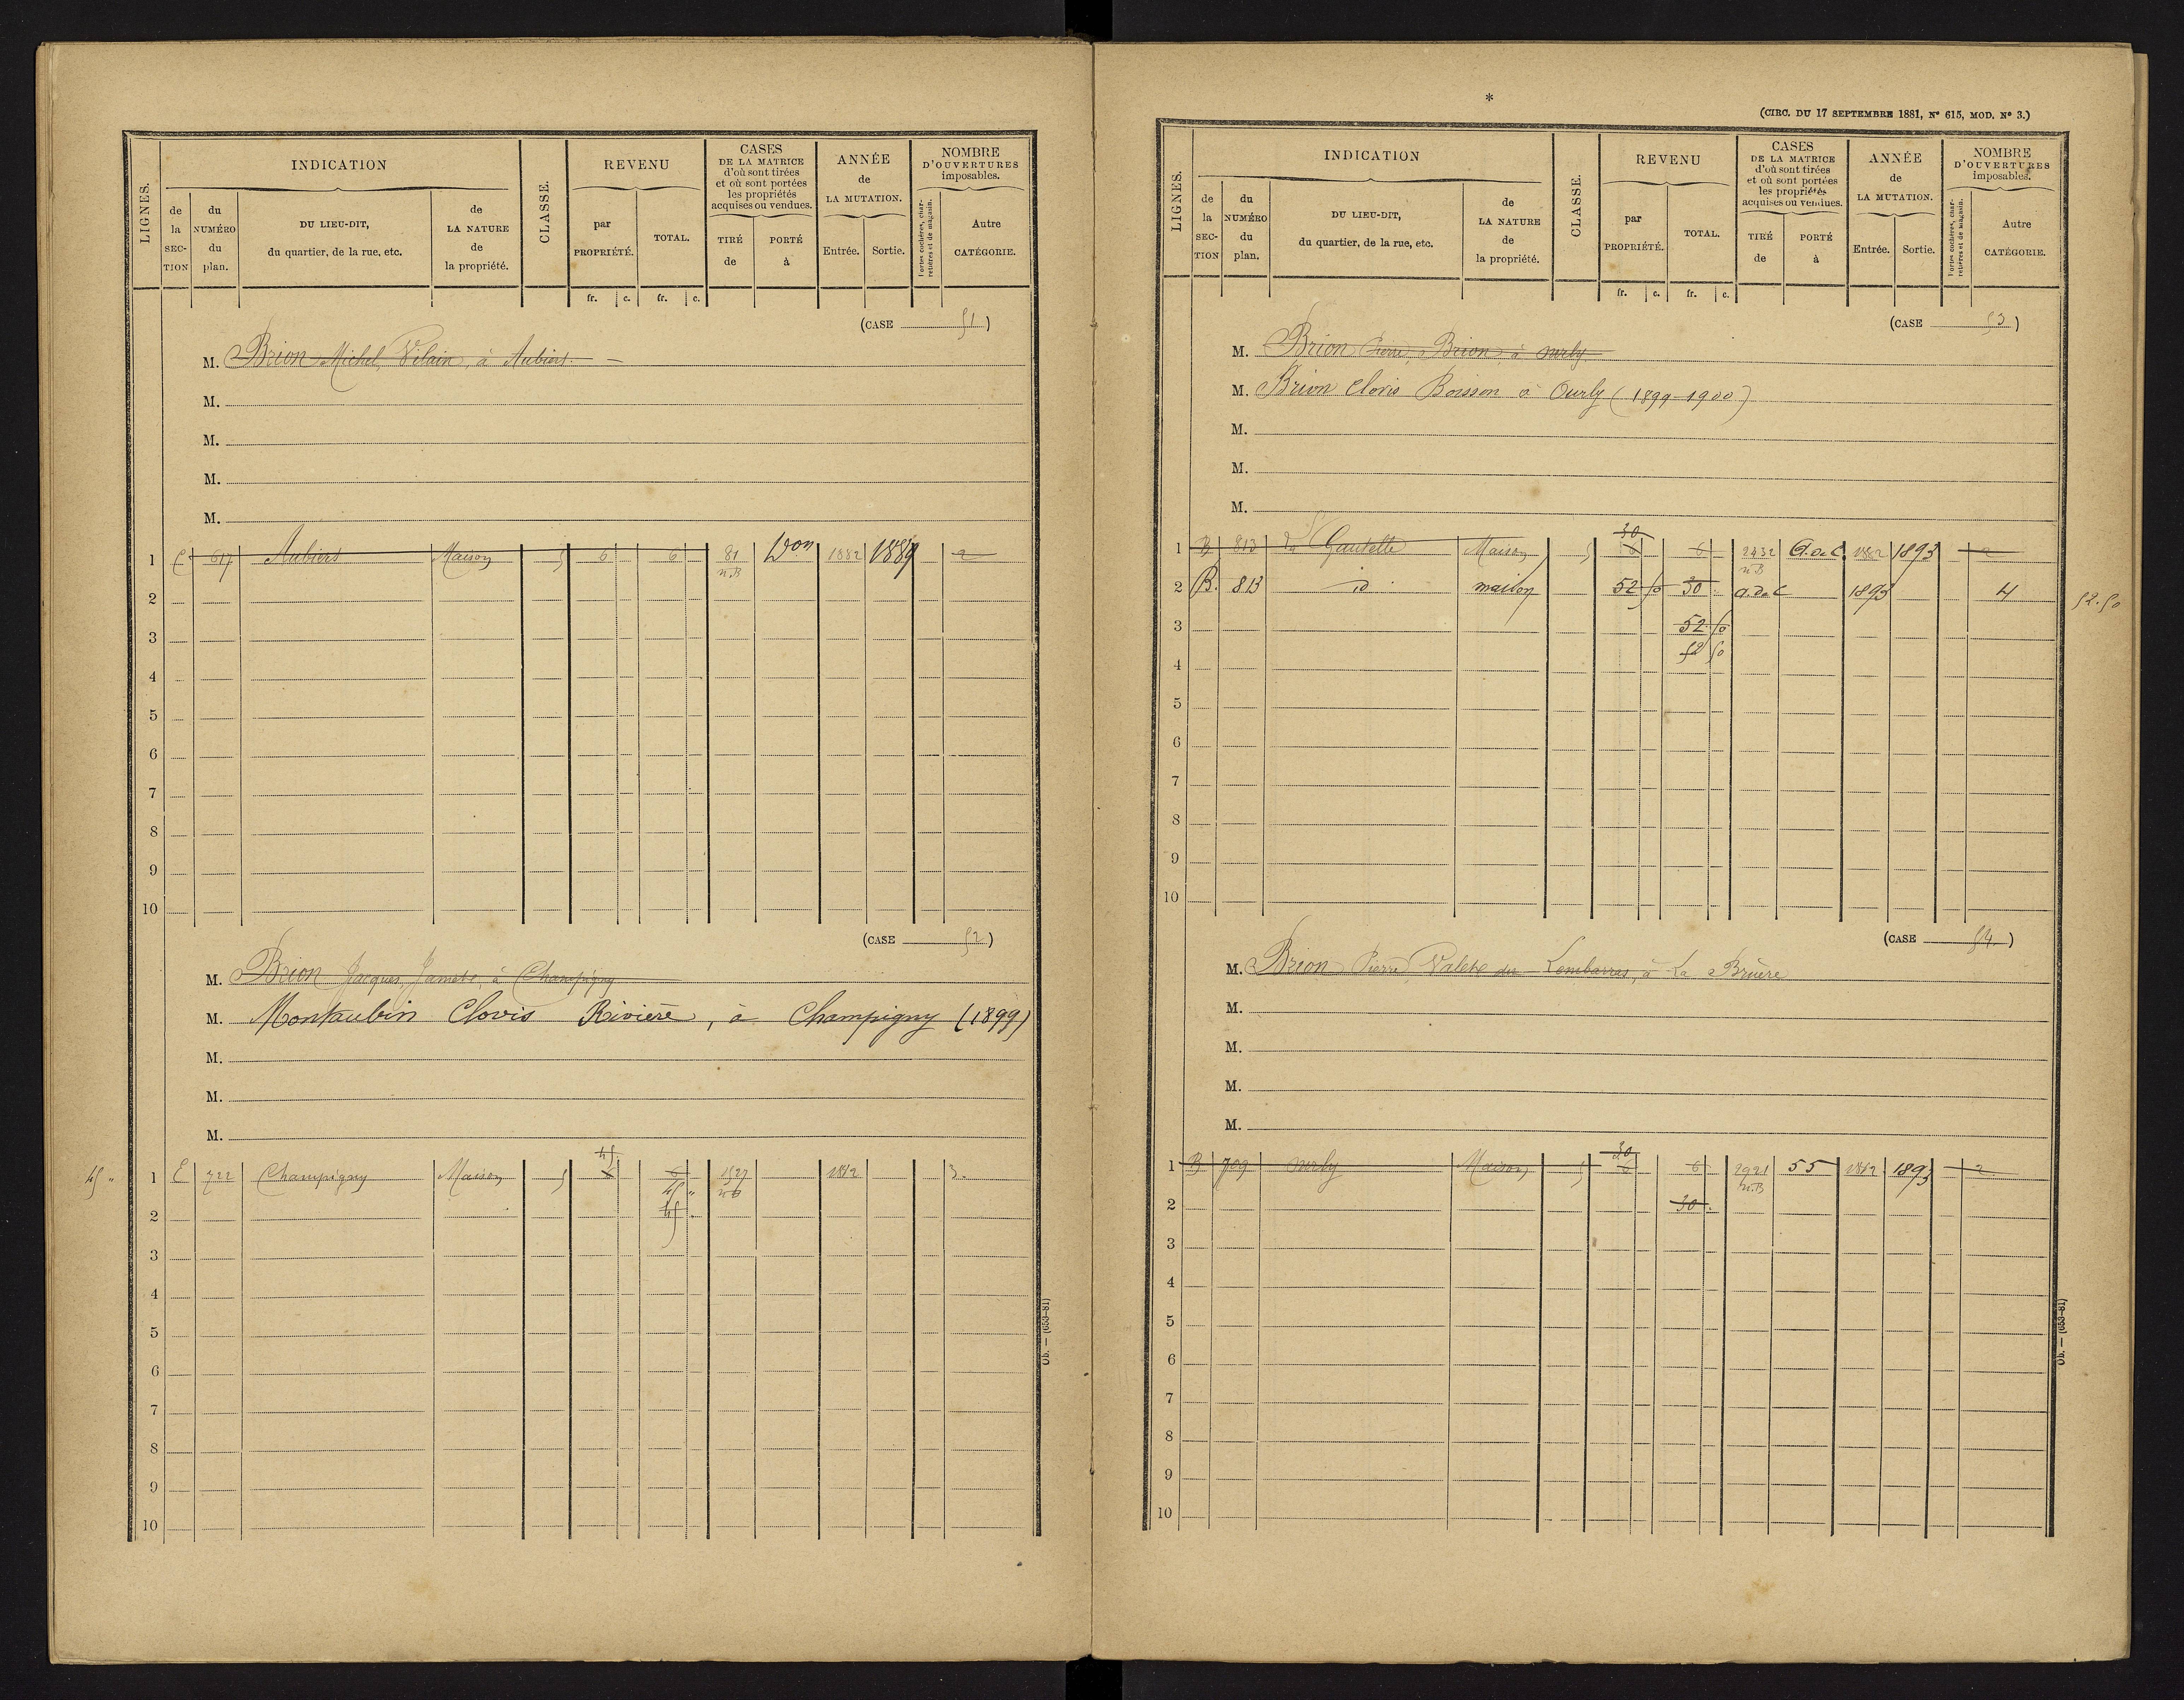 LIGNES.
INDICATION
de la SECTION
du NUMÉRO du plan.
DU LIEU-DIT, du quartier, de la rue, etc.
de LA NATURE de la propriété.
CLASSE.
REVENU
par PROPRIÉTÉ.
TOTAL.
fr. c. fr. c.
CASES DE LA MATRICE d'où sont tirées et où sont portées les propriétés acquises ou vendues.
TIRÉ de
PORTÉ à
ANNÉE de LA MUTATION.
Entrée. Sortie.
NOMBRE D'OUVERTURES imposables.
Portes cochères, charretières et de magasin.
Autre CATÉGORIE.
(CASE 51)
M. Brion Michel, Vilain, à Aubiers
M.
M.
M.
M.
1 617 Aubiers Maison 5 6 6 81 Don 1882 1889 2
n.B
2
3
4
5
6
7
8
9
10
(CASE 52)
M. Brion Jacques, à Champigny
M. Montaubin Clovis Rivière, à Champigny (1899)
M.
M.
M.
45
45 " 1 E 722 Champigny Maison 5 6 6 1527 1882 3.
45 " n.B
2 45
3
4
5
6
7
8
9
10
Ob. — (653-81)
*
(CIRC. DU 17 SEPTEMBRE 1881, N° 615, MOD. N° 3.)
LIGNES.
INDICATION
de la SECTION
du NUMÉRO du plan.
DU LIEU-DIT, du quartier, de la rue, etc.
de LA NATURE de la propriété.
CLASSE.
REVENU
par PROPRIÉTÉ.
TOTAL.
fr. c. fr. c.
CASES DE LA MATRICE d'où sont tirées et où sont portées les propriétés acquises ou vendues.
TIRÉ de
PORTÉ à
ANNÉE de LA MUTATION.
Entrée. Sortie.
NOMBRE D'OUVERTURES imposables.
Portes cochères, charretières et de magasin.
Autre CATÉGORIE.
(CASE 53)
M. Brion Pierre, Brion à ourly
M. Brion Clovis Boisson à Ourly (1899-1900)
M.
M.
M.
30
1 B 813 La Gautelle Maison 5 6 6 2432 A.d.C. 1882 1893 2
n.B
2 B. 813 id maison 52 50 30 a.d.C 1893 4 52.50
3 52 50
52 50
4
5
6
7
8
9
10
(CASE 54)
M. Brion Pierre, Valete du Lembarras, à La Bruère
M.
M.
M.
M.
30
1 B 709 ourly Maison 5 6 6 2921 55 1882 1893 2
n.B
2 30
3
4
5
6
7
8
9
10
Ob. — (653-81)